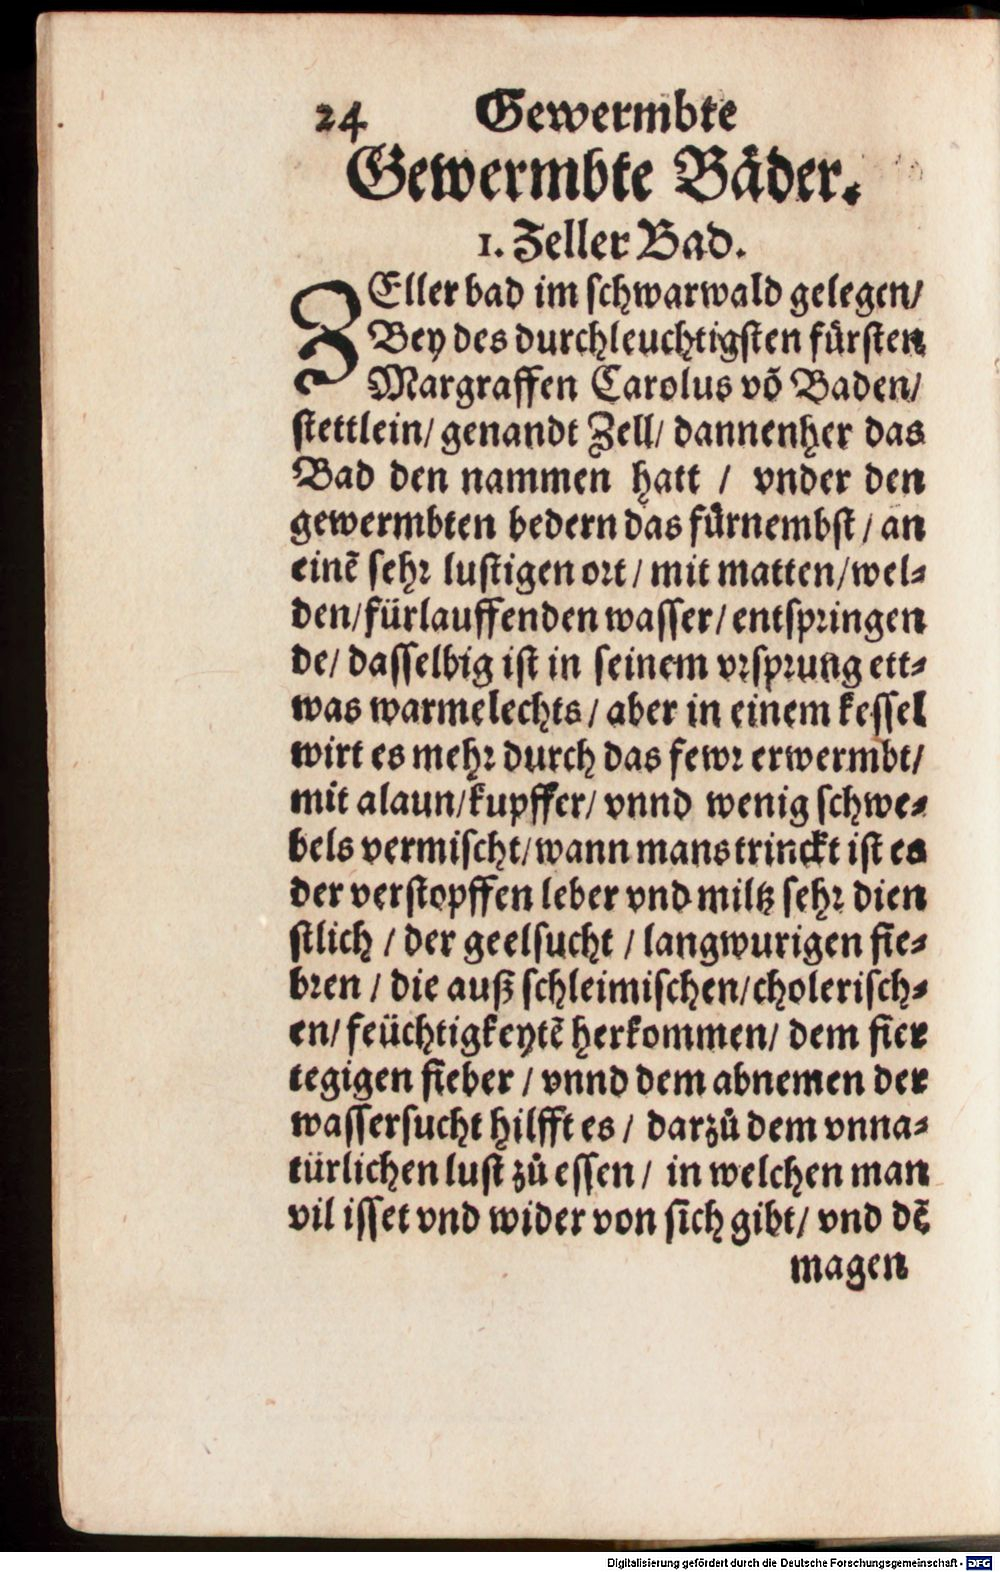 24 Gewermbte
Gewermbte Bäder.
1. Zeller Bad.
ZEller bad im schwarwald gelegen/
Bey des durchleuchtigsten fürsten
Margraffen Carolus võ Baden/
stettlein/ genandt Zell/ dannenher das
Bad den nammen hatt / vnder den
gewermbten bedern das fürnembst / an
einẽ sehr lustigen ort / mit matten/wel⸗
den/fürlauffenden wasser/ entspringen
de/ dasselbig ist in seinem vrsprung ett⸗
was warmelechts / aber in einem kessel
wirt es mehr durch das fewr erwermbt/
mit alaun/kupffer/ vnnd wenig schwe⸗
bels vermischt/wann mans trinckt ist es
der verstopffen leber vnd miltz sehr dien
stlich / der geelsucht / langwurigen fie⸗
bren / die auß schleimischen/cholerisch⸗
en/ feüchtigkeytẽ herkommen/ dem fier
tegigen fieber / vnnd dem abnemen der
wassersucht hilfft es / darzů dem vnna⸗
türlichen lust zů essen / in welchen man
vil isset vnd wider von sich gibt/ vnd dẽ
magen
Digitalisierung gefördert durch die Deutsche Forschungsgemeinschaft - DFG